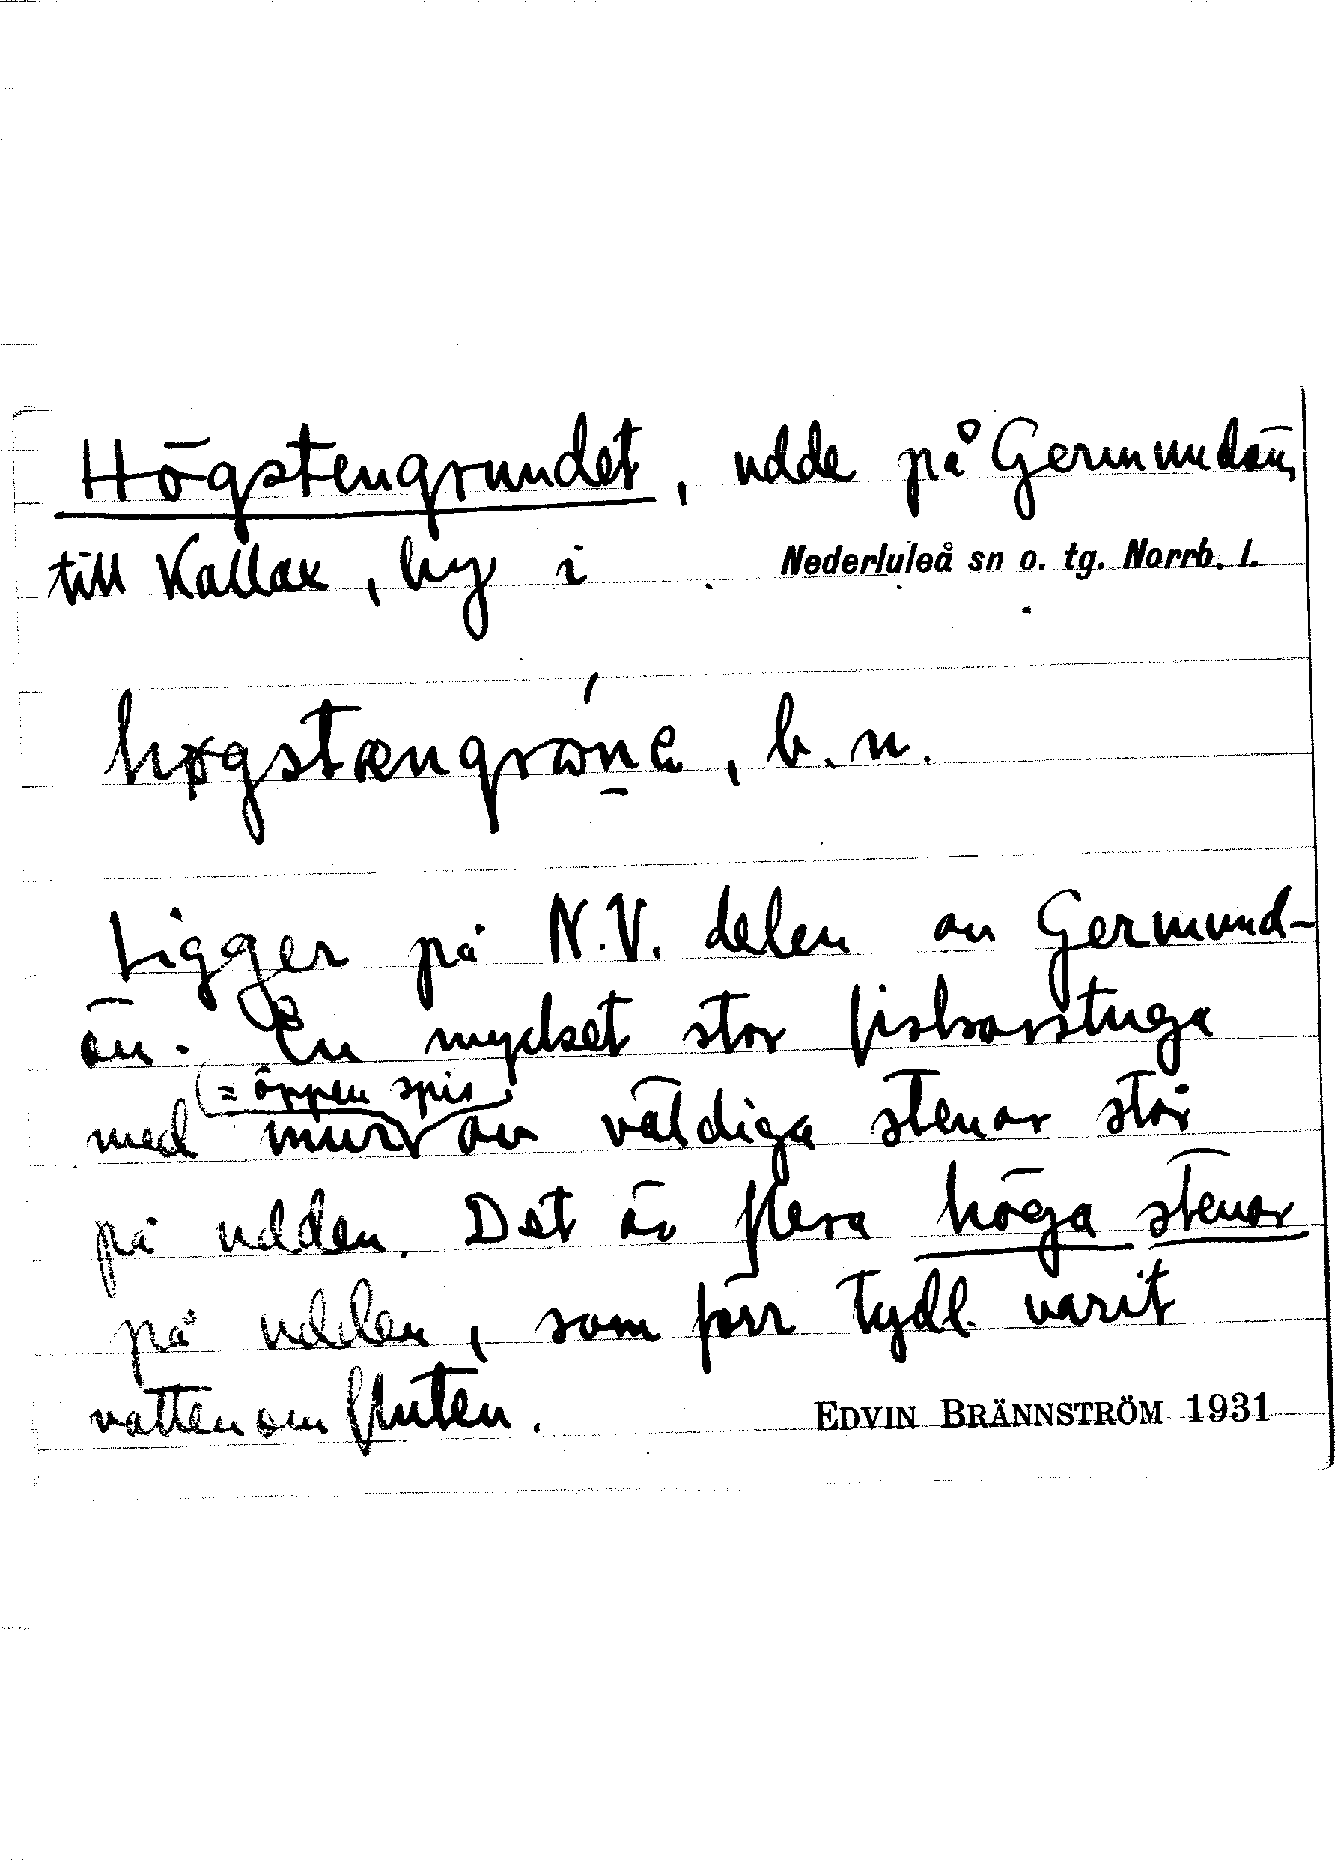 Högstengrundet, udde på Germundön,
till Kallax, by i Nederluleå sn o. tg. Norrb. l.
høgstængrɷ́na, b. n.
Ligger på N.V. delen av Germund-
ön. En mycket stor fiskarstuga
(= öppen spis)
med murr av väldiga stenar står
på udden. Det är flera höga stenar
på udden, som förr tydl. varit
vatten om fluten.
EDVIN BRÄNNSTRÖM 1931